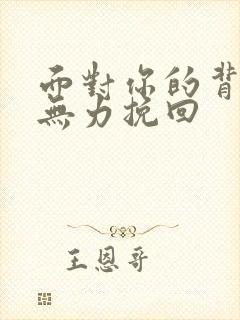 面對你的背
無力挽回
王恩哥